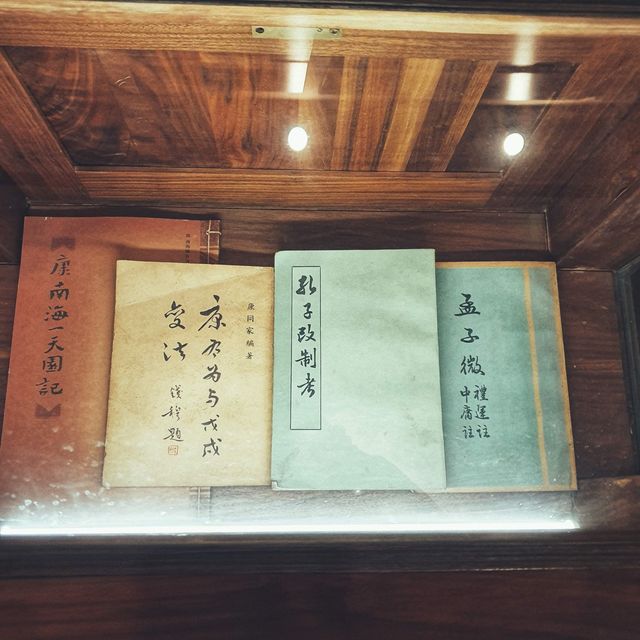 康南海一天園記
康同家編著
康有为与戊戌
变法
钱穆題
孔子改制考
孟子微
禮運註
中庸註